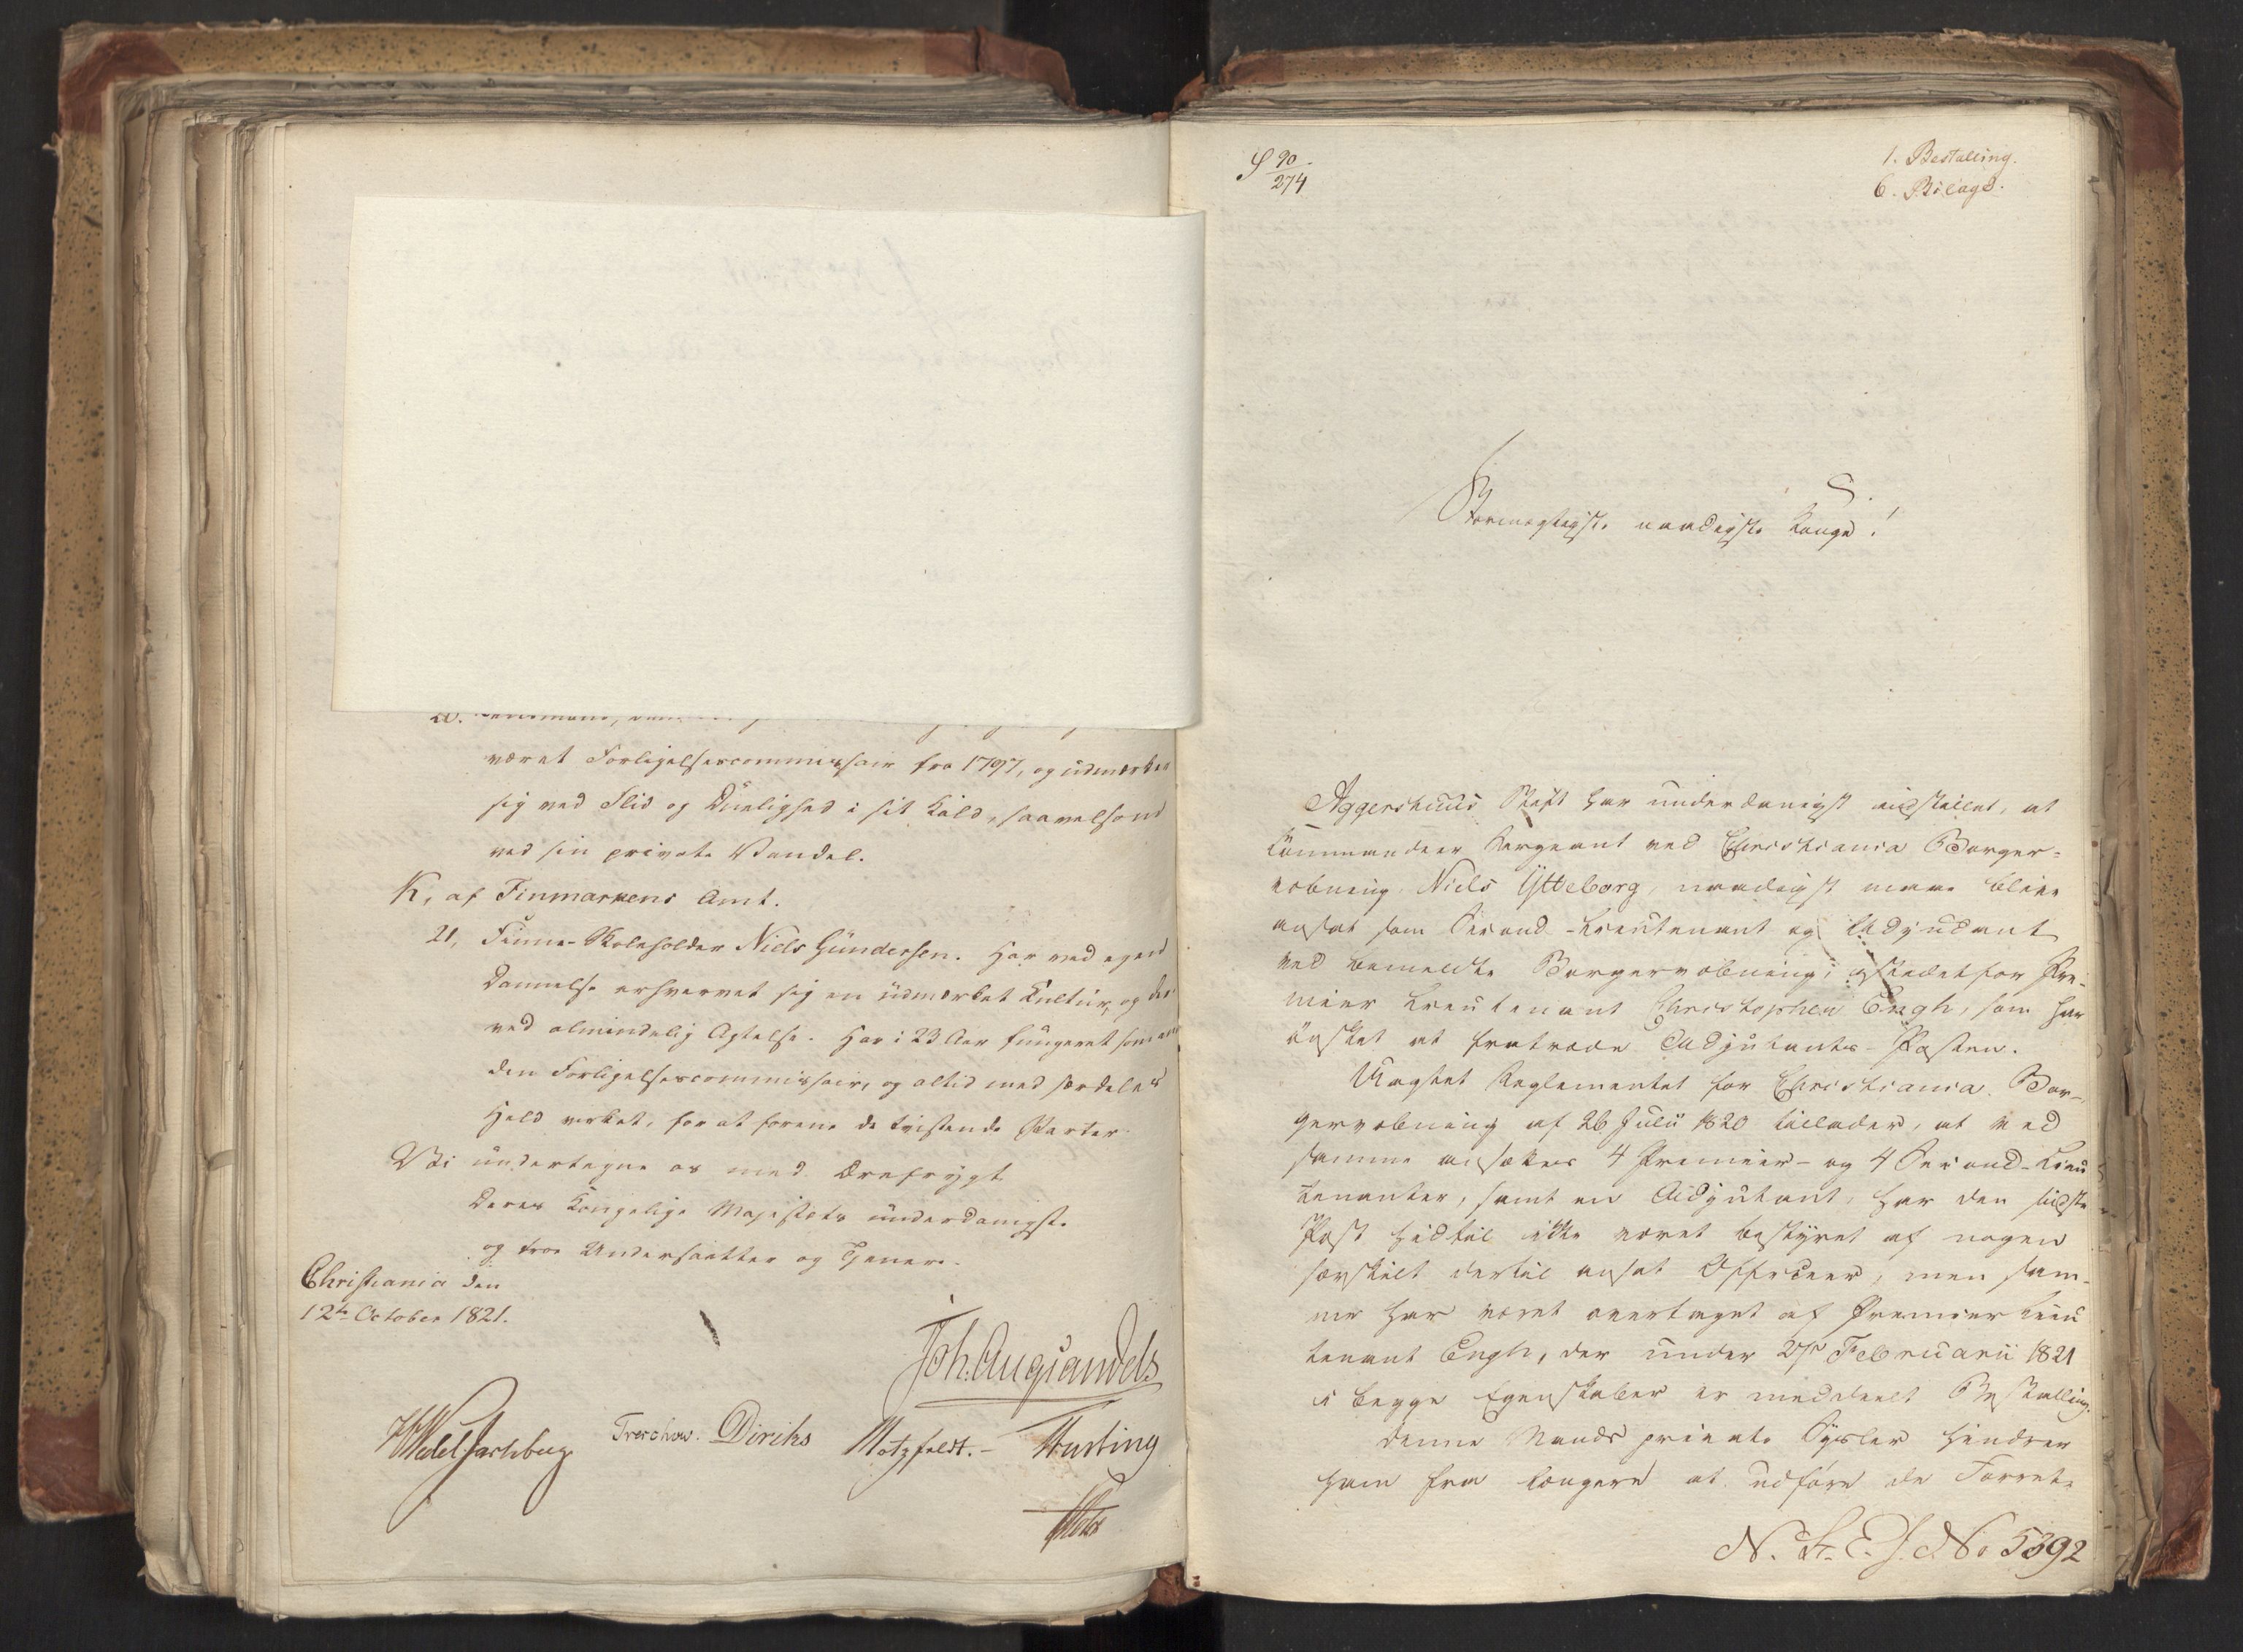 været Forligelsescommissair fra 1797, og udmærker
sig ved Flid og Duelighed i sit Kald, saavelsom
ved sin private Vandel.
K, af Finmarkens Amt.
21, Finne-Skoleholder Niels Gündersen. Har ved egen
Dannelse erhvervet sig en udmærket Kultur, og der
ved almindelig Agtelse. Har i 23 Aar fungeret som
den Forligelsescommissair, og altid med særdeles
Held virket, for at forene de tvistende Parter
Vi undertegne os med Ærefrygt
Deres Kongelige Majestets underdanigste
og troe Undersaatter og Tjenere.
Christiania den
12te October 1821.
Joh. Aug: Sandels
HWedel Jarlsberg Treschow. Diriks Motzfeldt. Fasting
S 90/274
1. Bestalling.
6. Bilage.
S.
Stormægtigste naadigste Konge!
Aggershuus Stift har underdanigst indstillet, at
Kommandeer Sergeant ved Christiania Borger-
væbning, Niels Ytteborg, naadigst maae blive
ansat som Second-Lieutenant og Adjudant
ved bemeldte Borgervæbning, istedetfor Pre-
mier Lieutenant Christopher Engh, som har
ønsket at fratræde Adjutants-Posten.
Uagtet Reglementet for Christiania Bor-
gervæbning af 26 Julii 1820 tillader, at ved
samme ansættes 4 Premier- og 4 Second-Lieu
tenanter, samt en Adjutant, har den sidste
Post hidtil ikke været bestyret af nogen
særskilt dertil ansat Officeer, men sam-
me har været overtaget af Premier Lieu
tenant Engh, der under 27 Februarii 1821
i begge Egenskaber er meddeelt Bestalling.
Denne Mands private Sysler hindrer
ham fra længere at udføre de Forret-
No 5392